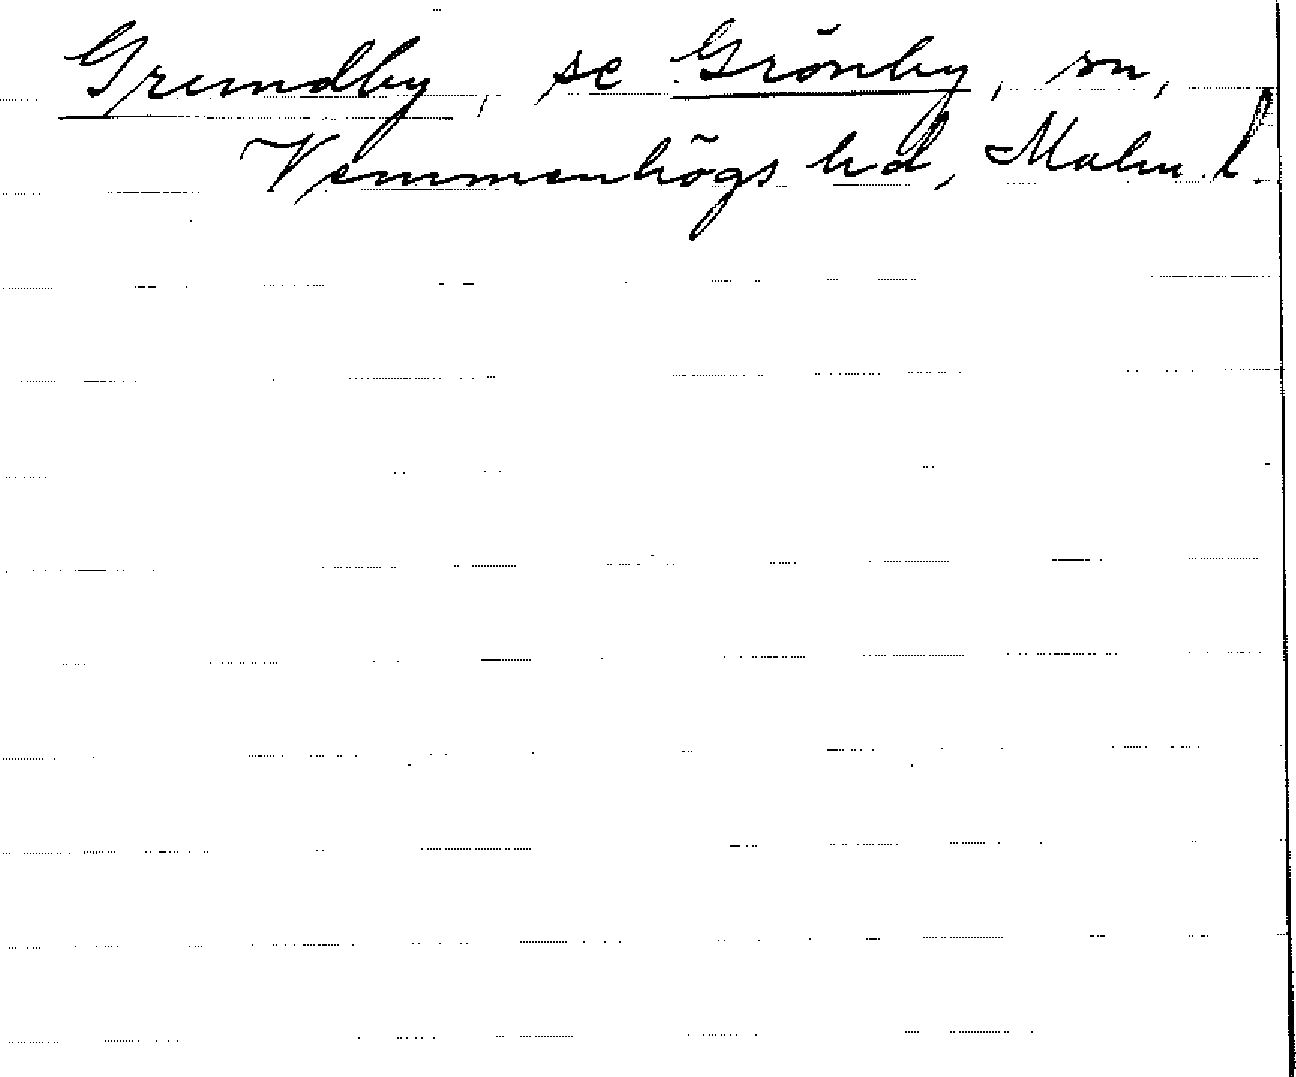 Grundby, se Grönby, sn,
Vemmenhögs hd, Malm. l.